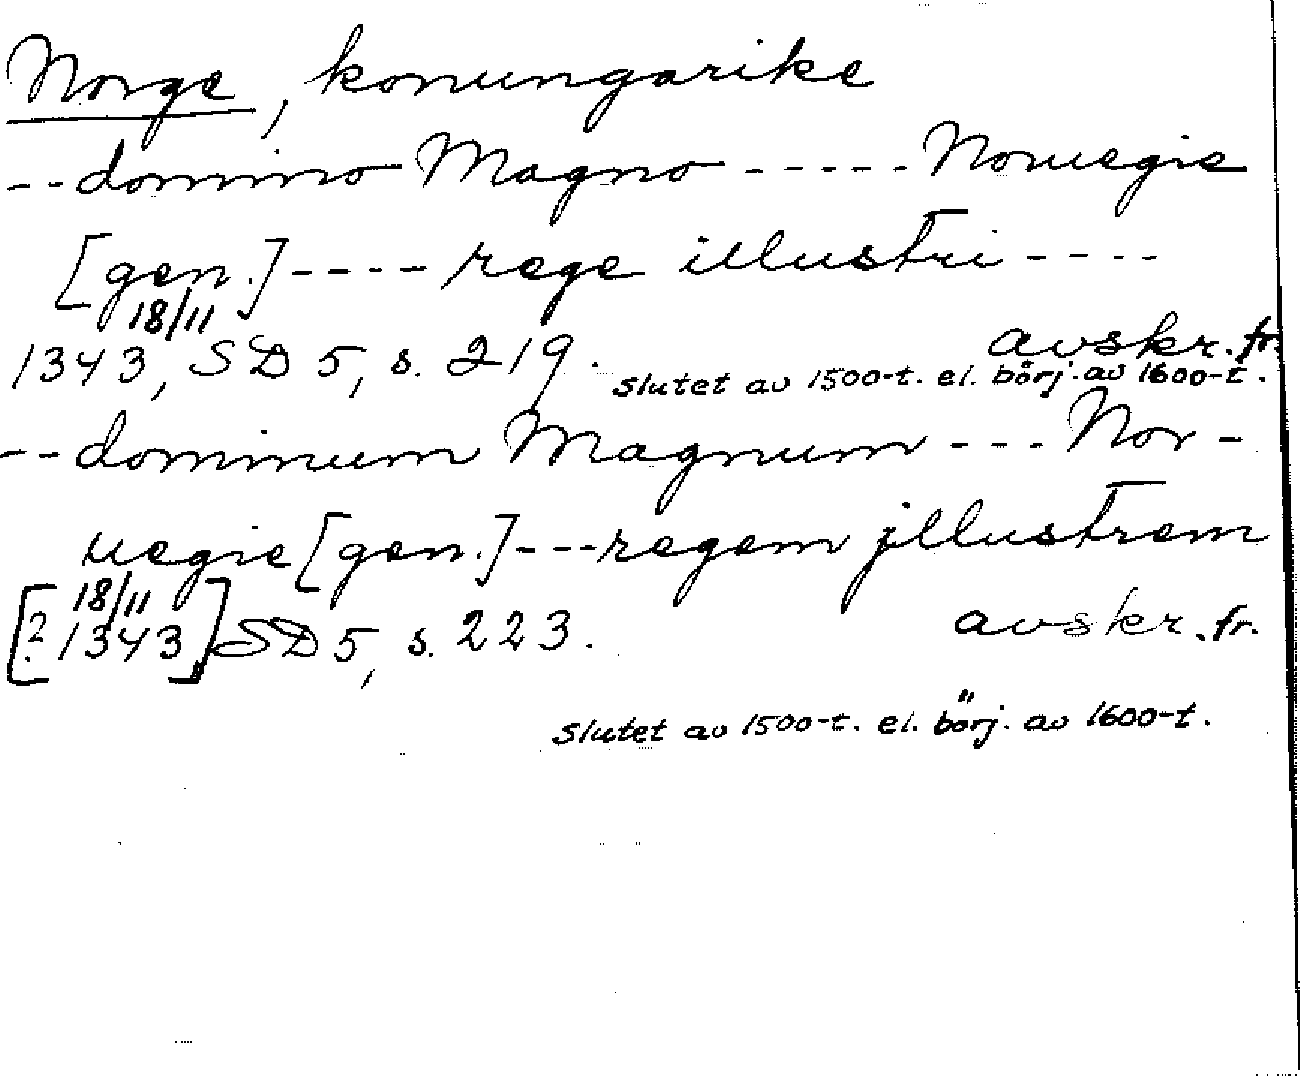 Norge, konungarike
--domino Magno ----- Noruegie
[gen.]---- rege illustri ----
18/11
1343, SD 5, s. 219. avskr. fr.
slutet av 1500-t. el. börj. av 1600-t.
--dominum Magnum --- Nor-
uegie [gen.]---regem jllustrem
18/11
[? 1343] SD 5, s. 223. avskr. fr.
slutet av 1500-t. el. börj. av 1600-t.